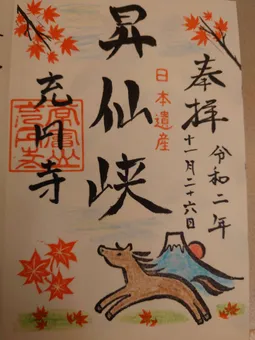 奉拝
令和二年
十一月二十六日
昇仙峡
日本遺産
充円寺